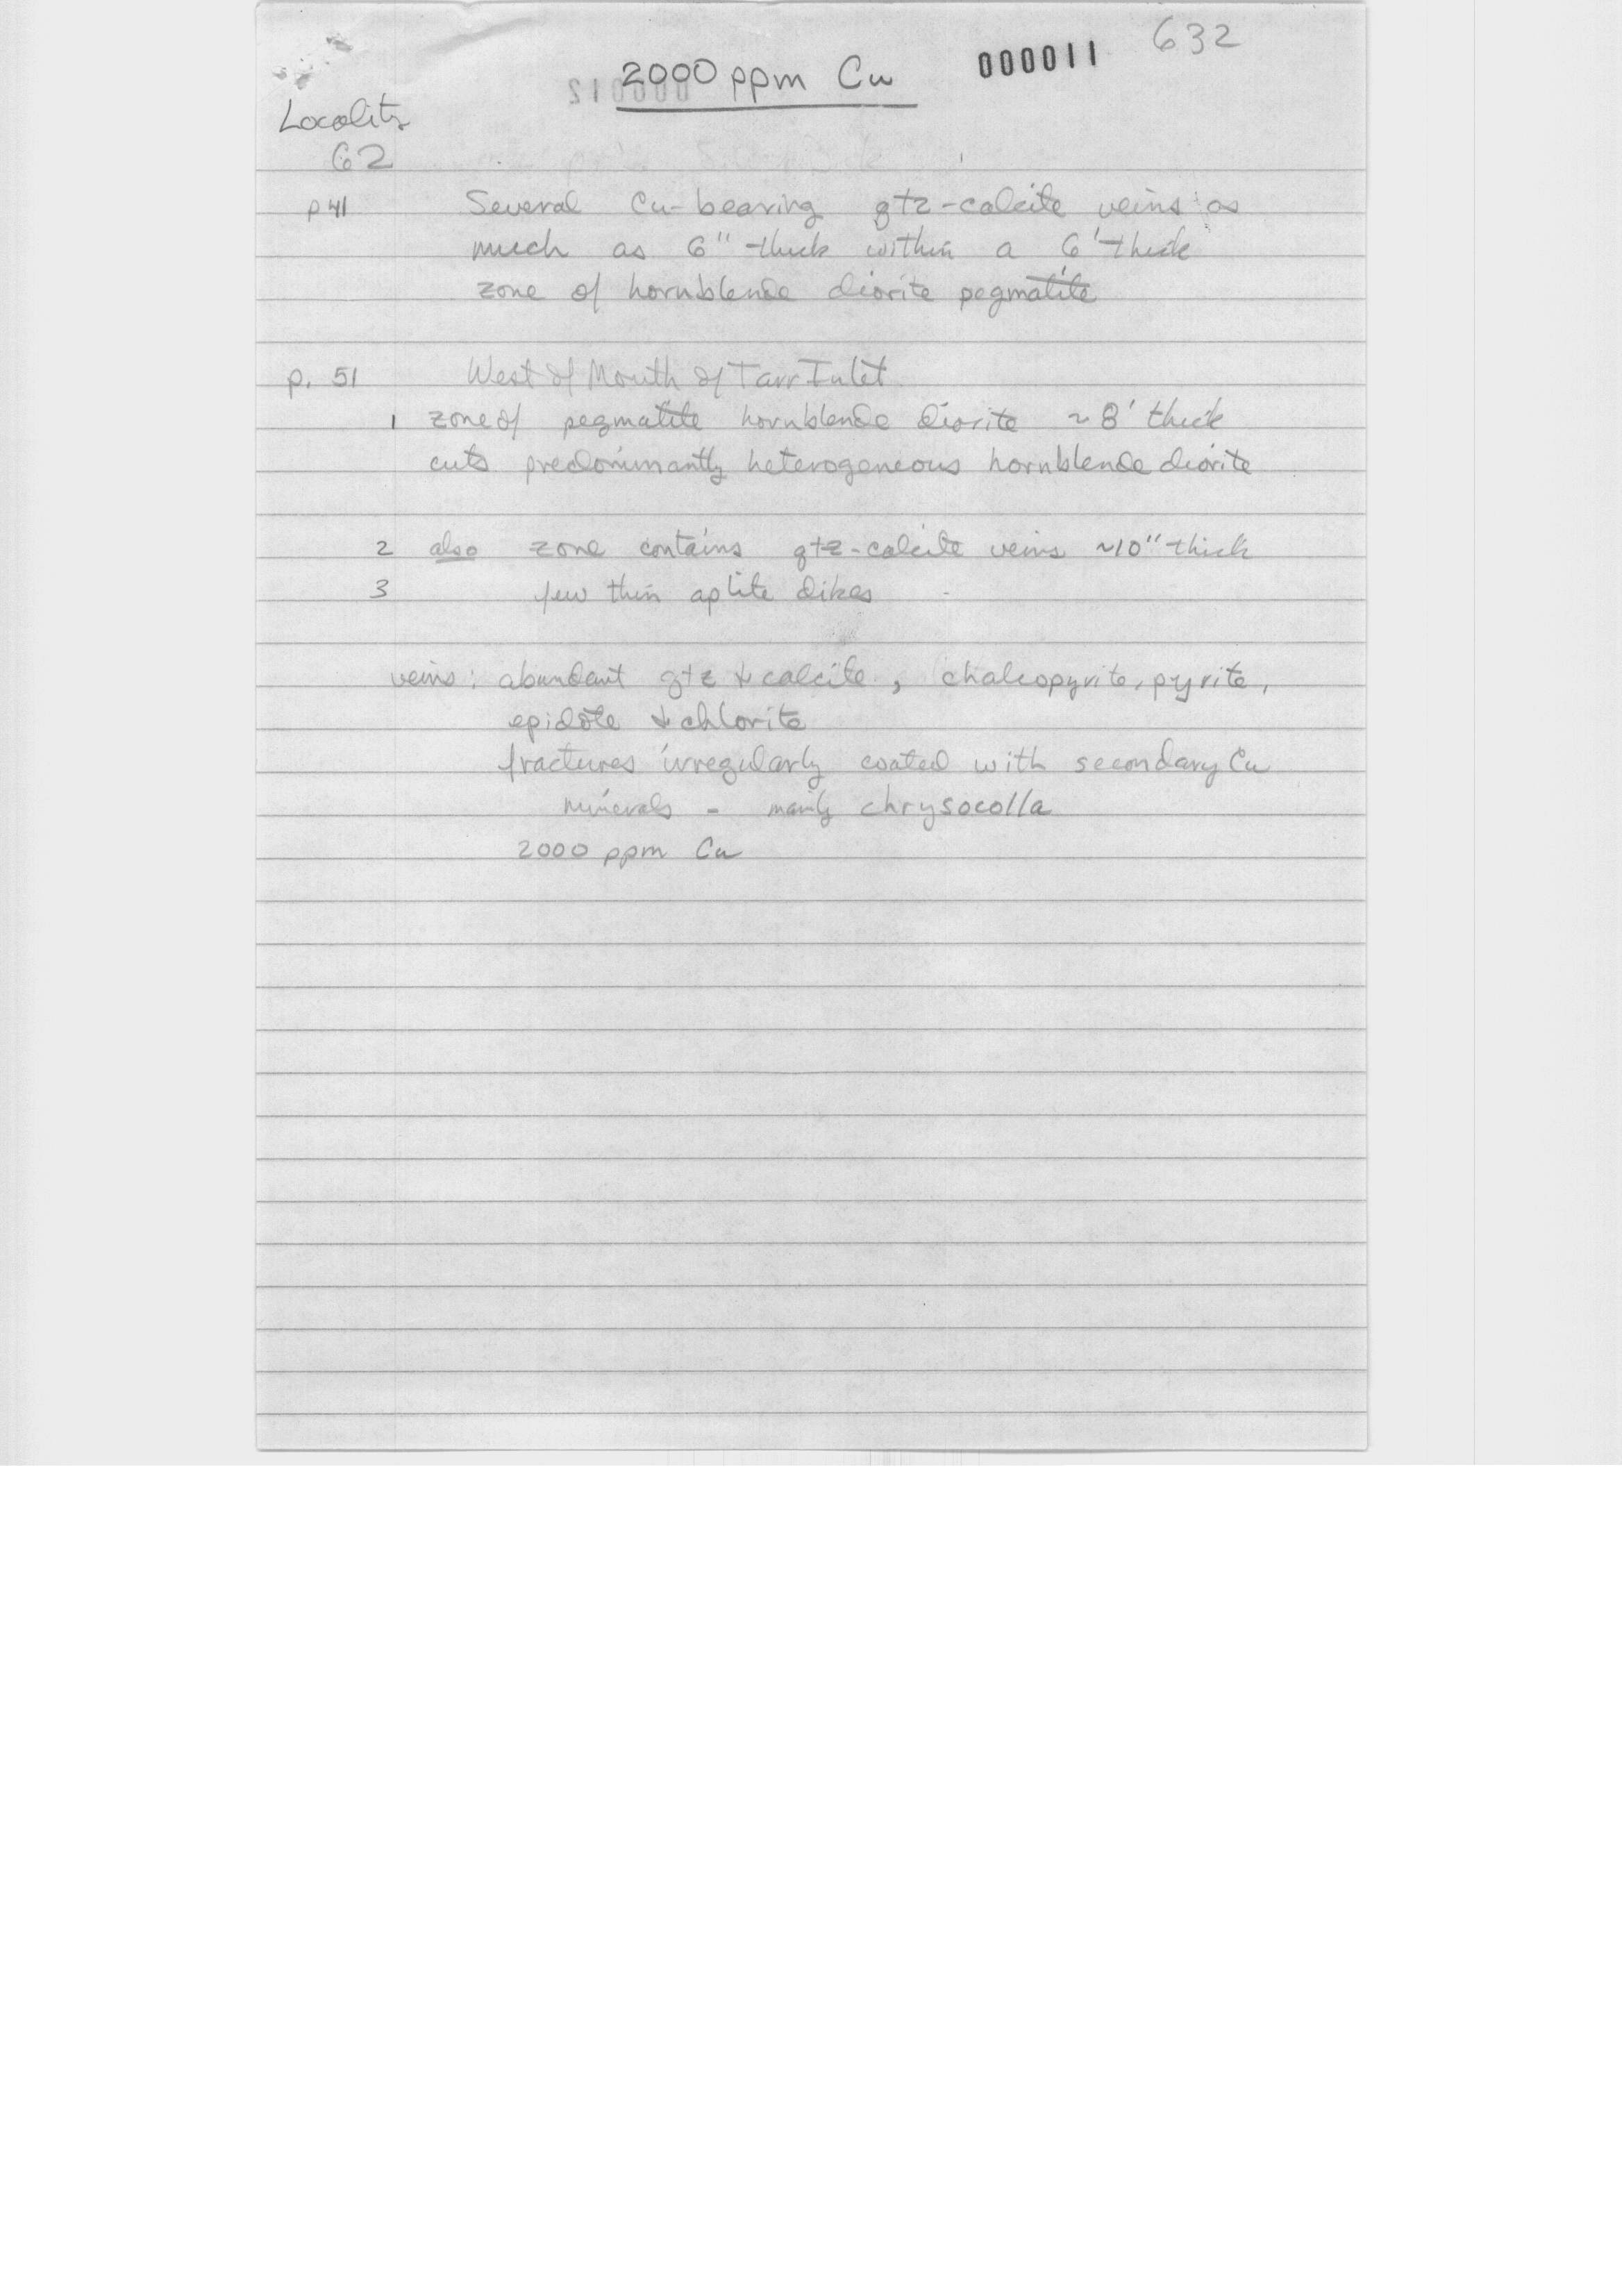 632
000011
2000 ppm Cu
Locality
62
p 41 Several Cu-bearing qtz-calcite veins as
much as 6" thick within a 6' thick
zone of hornblende diorite pegmatite
p. 51 West of Mouth of Tarr Inlet
1 zone of pegmatite hornblende diorite ~ 8' thick
cuts predominantly heterogeneous hornblende diorite
2 also zone contains qtz-calcite veins ~10" thick
3 few thin aplite dikes
veins: abundant qtz & calcite, chalcopyrite, pyrite,
epidote & chlorite
fractures irregularly coated with secondary Cu
minerals - mainly chrysocolla
2000 ppm Cu